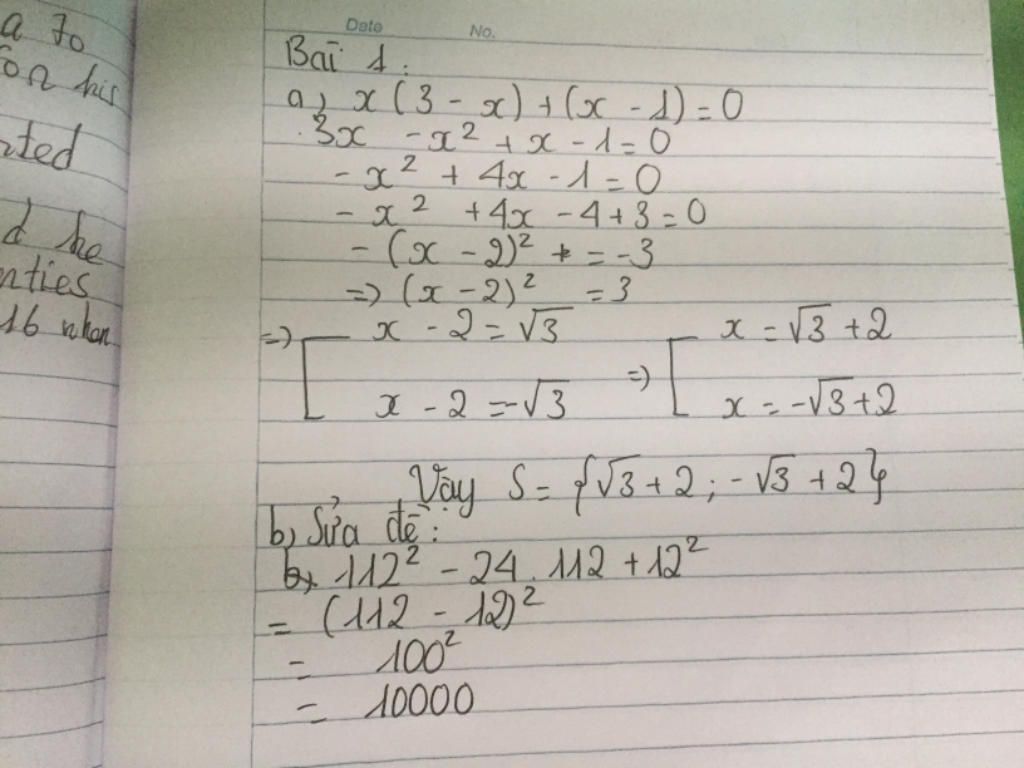 a to
for his
nted
d he
nties
16 nhan
Date No.
Bài 1:
a, x(3 - x) + (x - 1) = 0
3x - x² + x - 1 = 0
- x² + 4x - 1 = 0
- x² + 4x - 4 + 3 = 0
- (x - 2)² = -3
=> (x - 2)² = 3
=> [ x - 2 = √3 => [ x = √3 + 2
x - 2 = -√3 x = -√3 + 2
Vậy S = {√3 + 2 ; -√3 + 2}
b, Sửa đề:
b, 112² - 24 . 112 + 12²
= (112 - 12)²
= 100²
= 10000